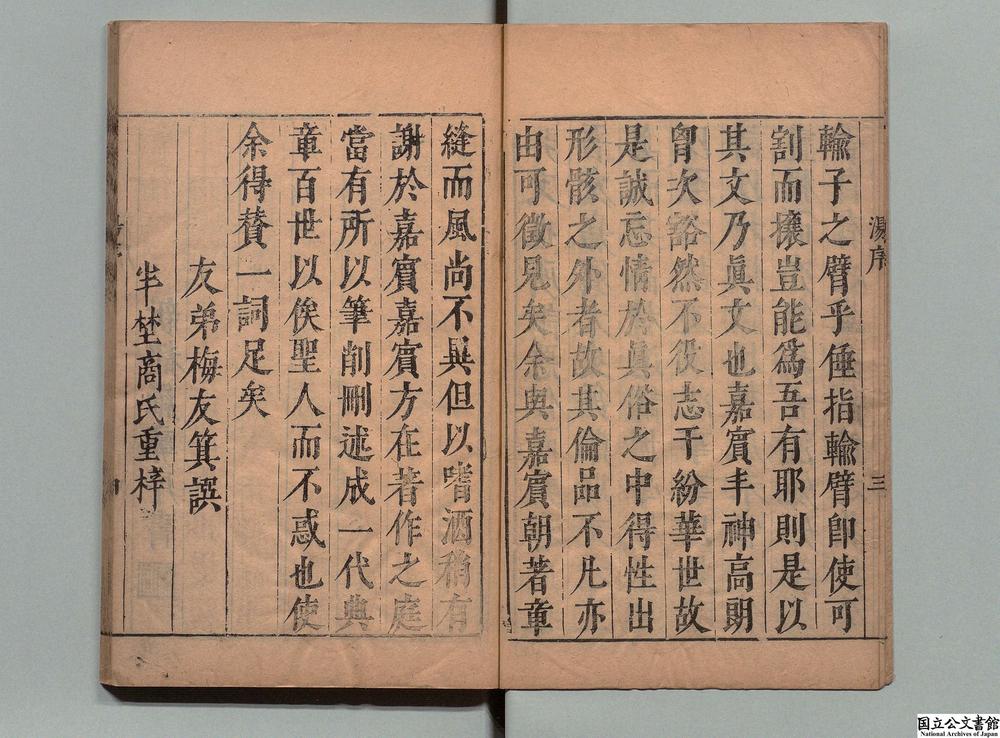 湯序
三
輸子之臂乎倕指輸臂卽使可
割而攘豈能爲吾有耶則是以
其文乃眞文也嘉賓丰神高朗
胷次豁然不役志于紛華世故
是誠忘情於眞俗之中得性出
形骸之外者故其倫品不凡亦
由可徵見矣余與嘉賓朝著章
縫而風尚不異但以嗜酒稍有
謝於嘉賓嘉賓方在著作之庭
當有所以筆削刪述成一代典
章百世以俟聖人而不惑也使
余得賛一詞足矣
友弟梅友箕譔
半埜商氏重梓
国立公文書館
National Archives of Japan